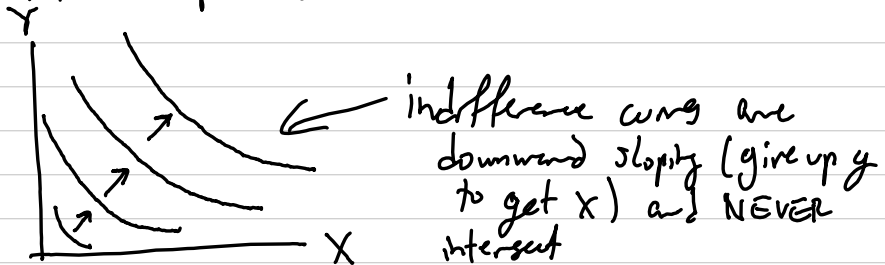 Y
indifference curves are
downward sloping (give up y
to get X) and NEVER
intersect
X